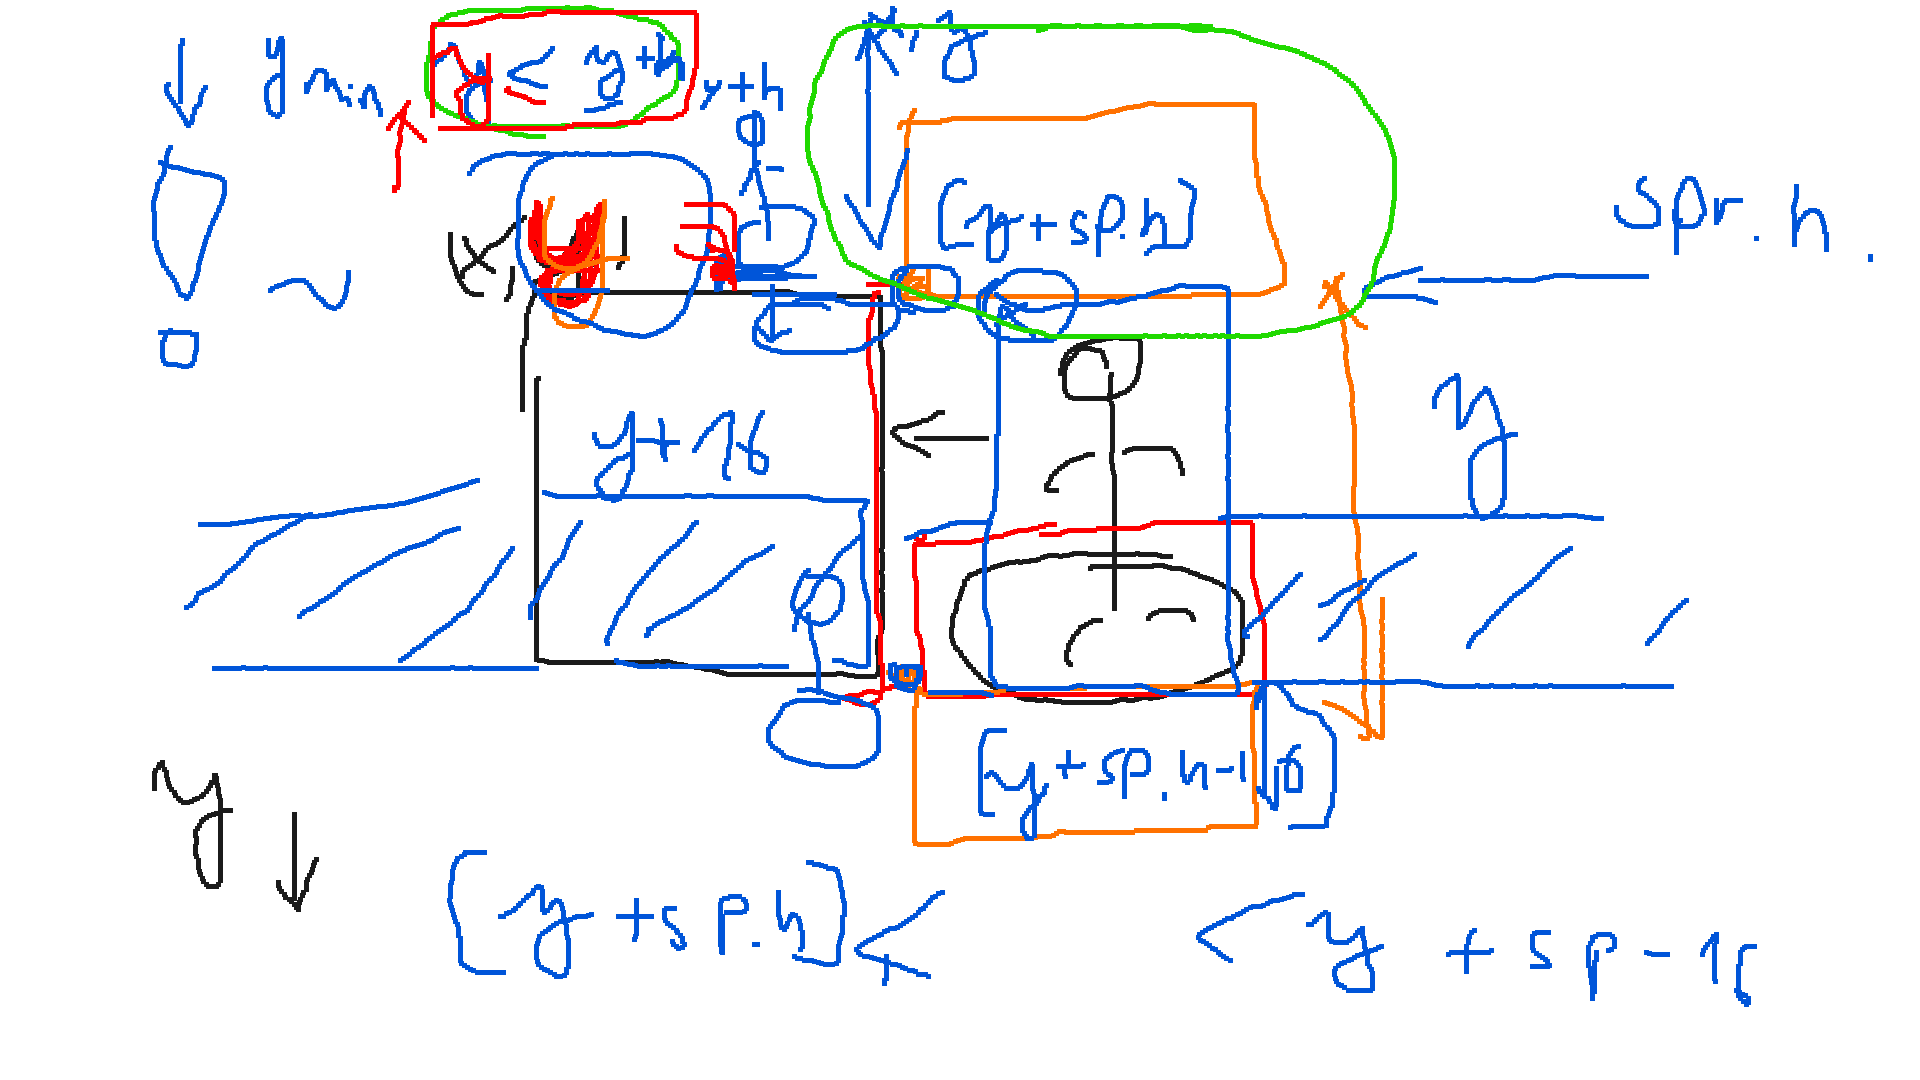 y min y ≤ y+h
y+h
x, y
[y+sp.h]
spr. h.
(x, y)
y+16
y
[y+sp.h-16]
y
[y+sp.h] <
< y + sp-16